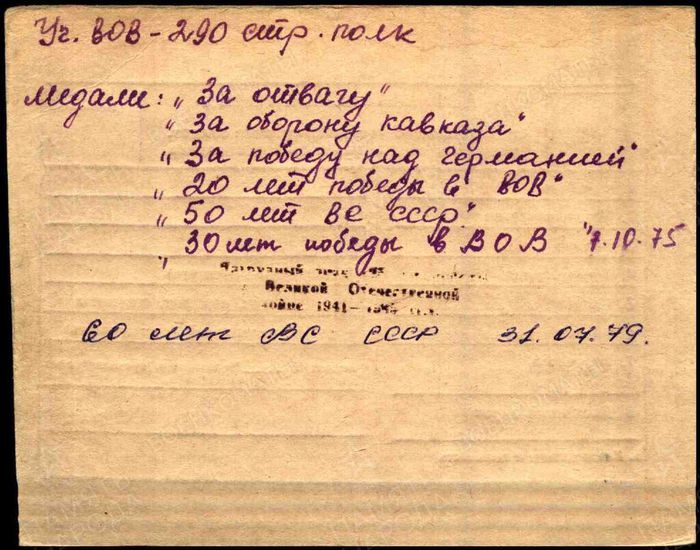 Уч. ВОВ - 290 стр. полк
Медали: "За отвагу"
"За оборону кавказа"
"За победу над германией"
"20 лет победы в ВОВ"
"50 лет ВС СССР"
"30 лет победы в ВОВ" 7.10.75
Великой Отечественной
войне 1941–1945 гг.
60 лет ВС СССР 31.07.79.